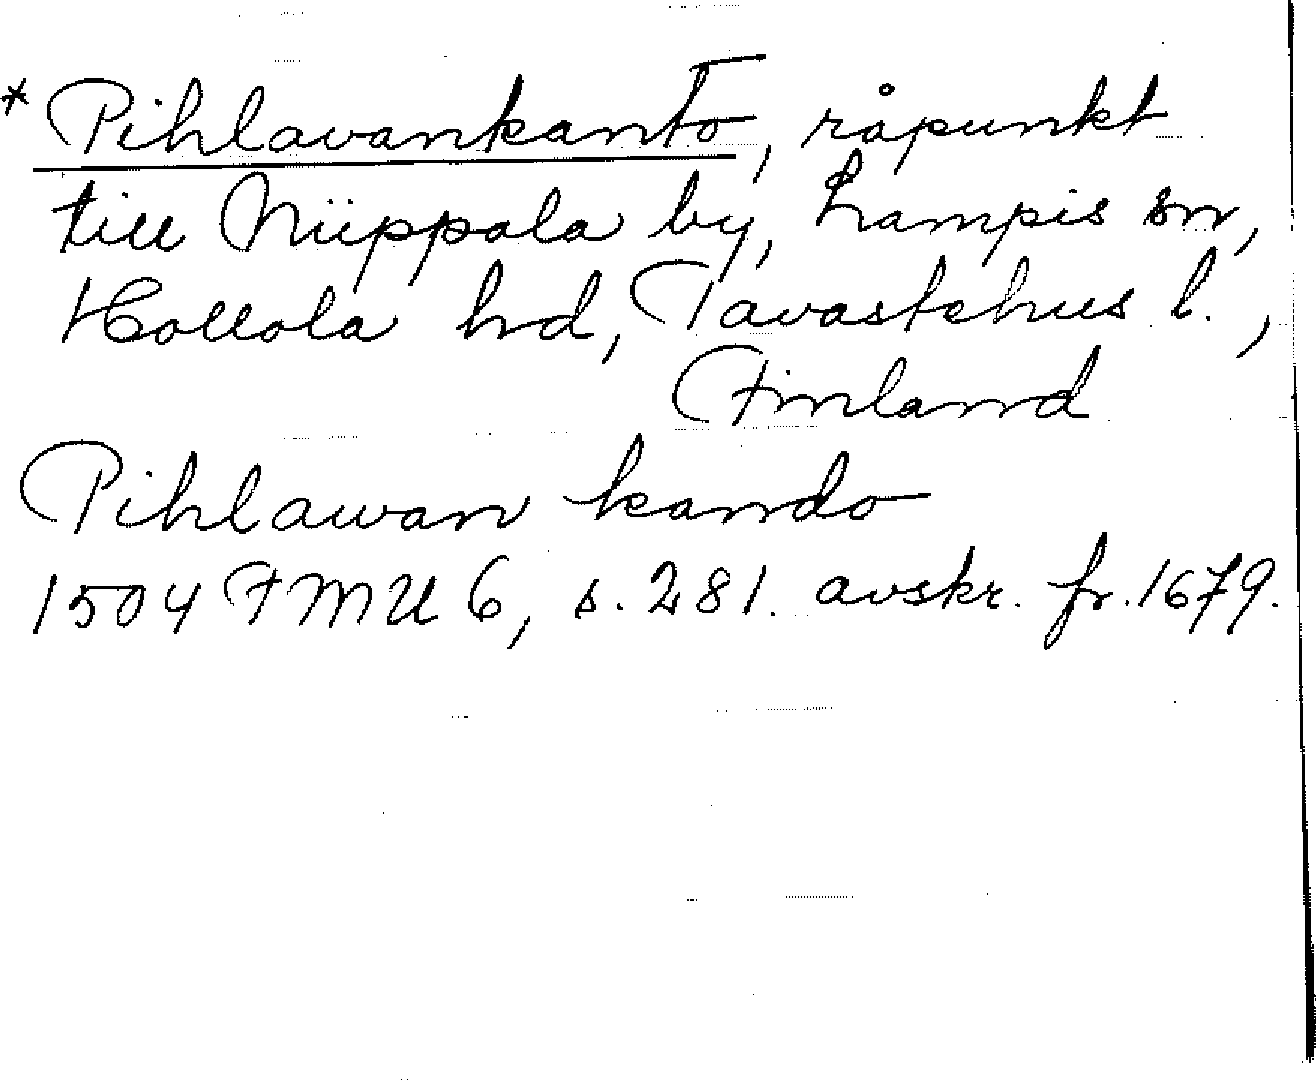 * Pihlavankanto, råpunkt
till Niippala by, Lampis sn,
Hollola hd, Tavastehus l.,
Finland
Pihlawan kando
1504 FMU 6, s. 281. avskr. fr. 1679.